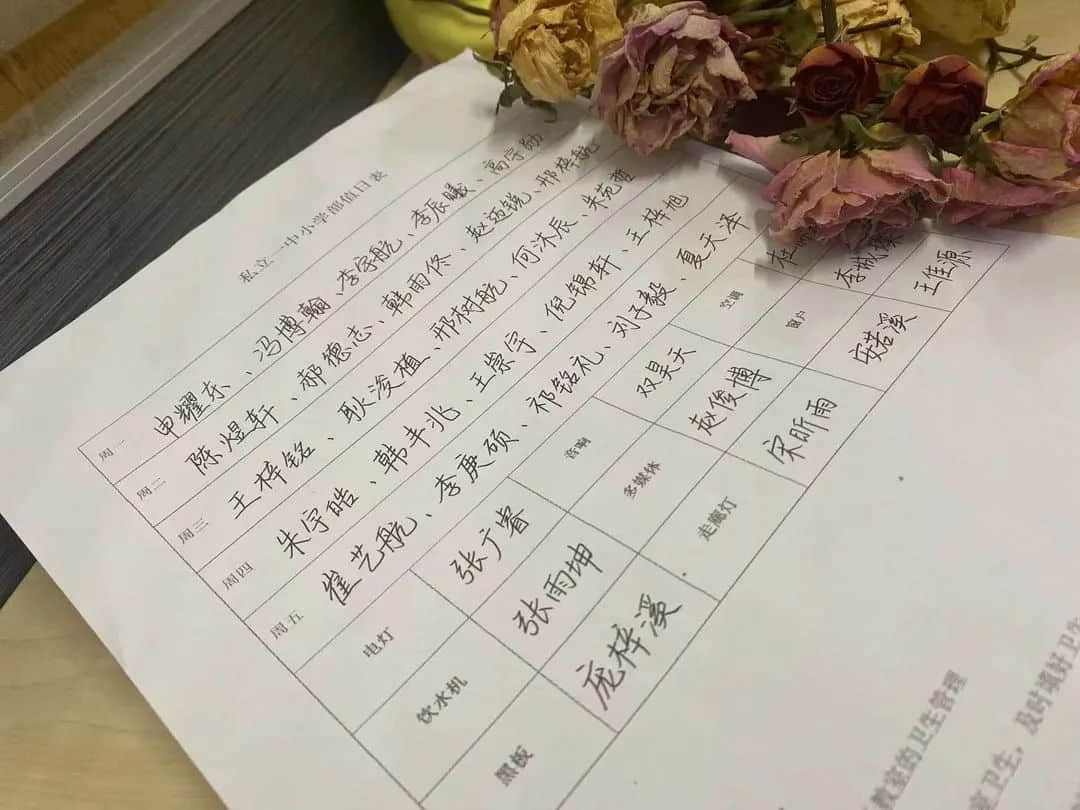 私立一中小学部值日表
周一 申耀东、冯博翰、李宇航、李辰曦、高宇勋
周二 陈煜轩、郝德志、韩雨佟、赵迈锐、邢梓航
周三 王梓铭、耿浚植、邢树航、何沐辰、朱苑哲
周四 朱宇皓、韩丰兆、王崇宇、倪锦轩、王梓旭
周五 崔艺航、李庚硕、祁铭礼、刘子毅、夏天泽
电灯 张广睿 音响 双昊天 空调
饮水机 张雨坤 多媒体 赵俊博 窗户
黑板 庞梓溪 走廊灯 宋昕雨 安若溪 王佳源
教室的卫生管理
卫生，及时填好卫生